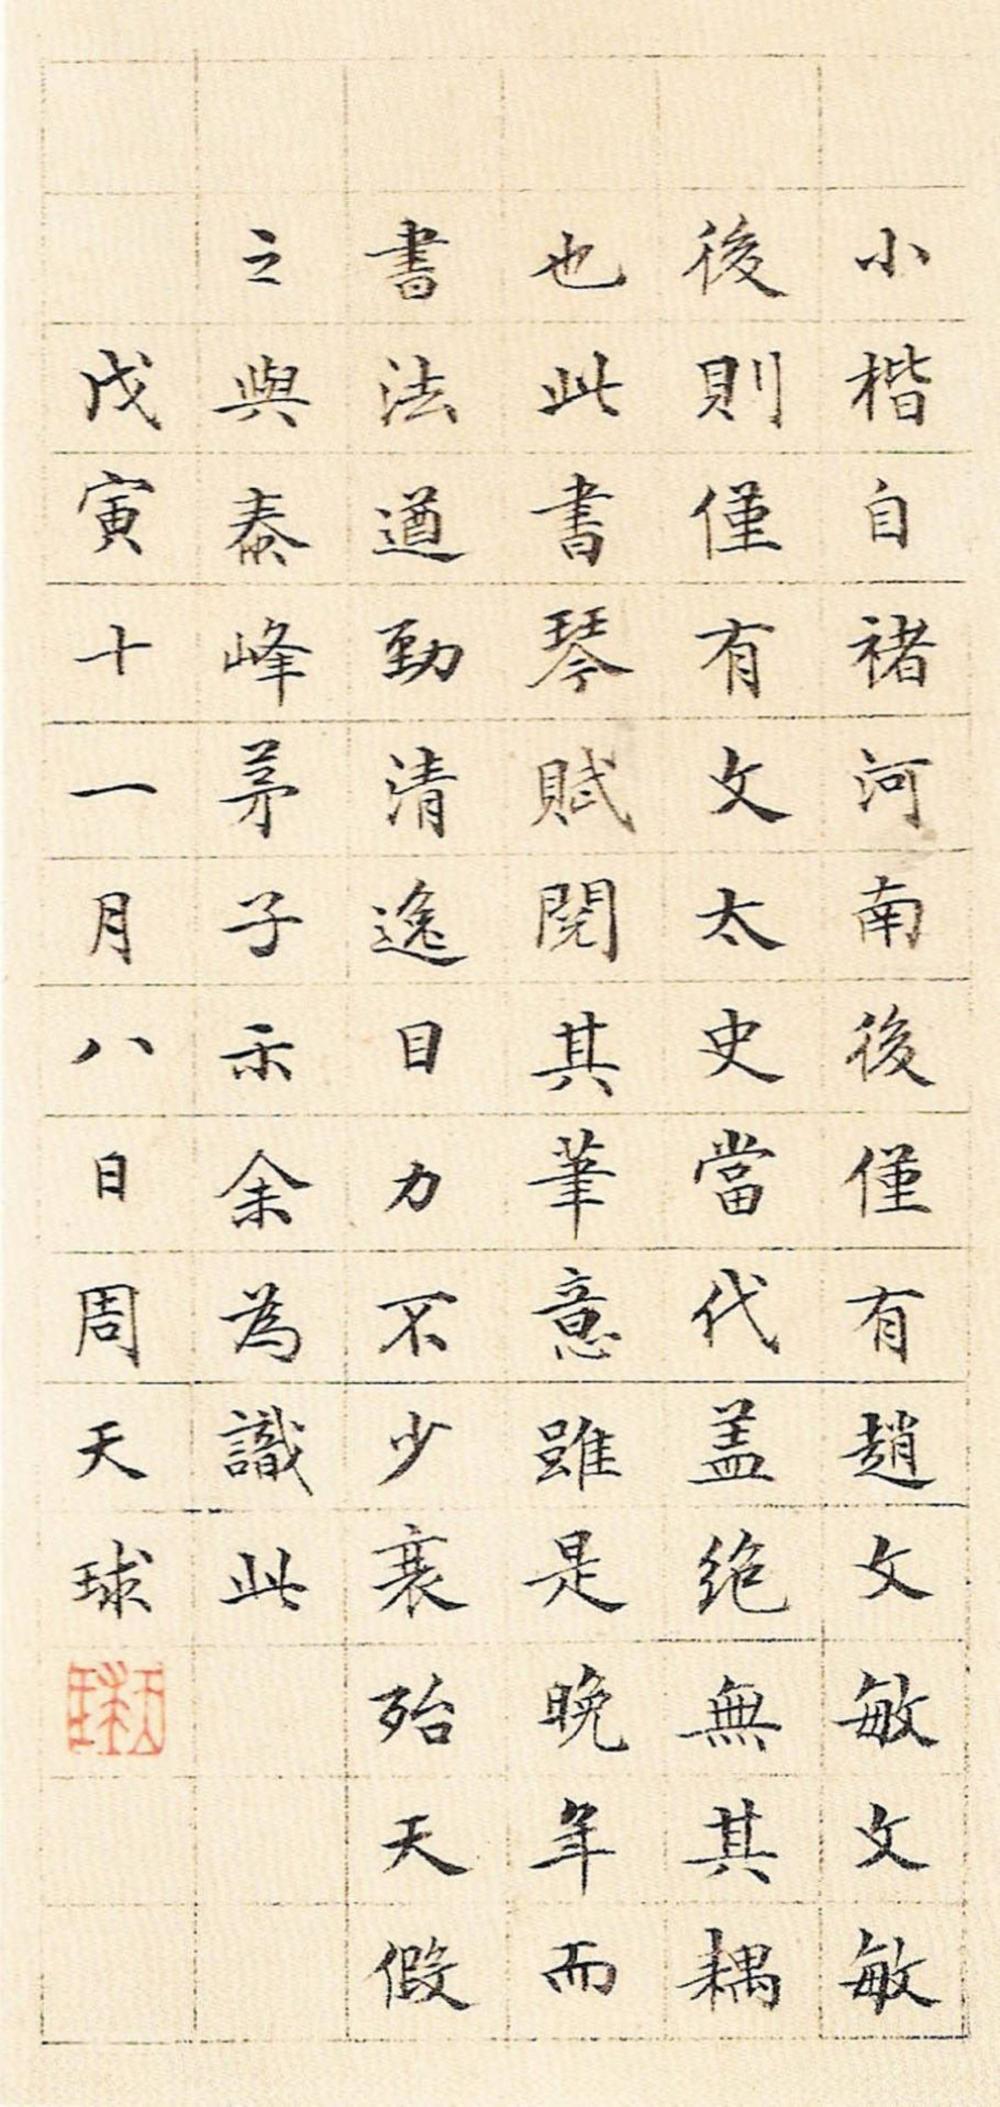 小楷自褚河南後僅有趙文敏文敏
後則僅有文太史當代盖絶無其耦
也此書琴賦閱其筆意雖是晚年而
書法遒勁清逸目力不少衰殆天假
之與泰峰茅子示余為識此
戊寅十一月八日周天球